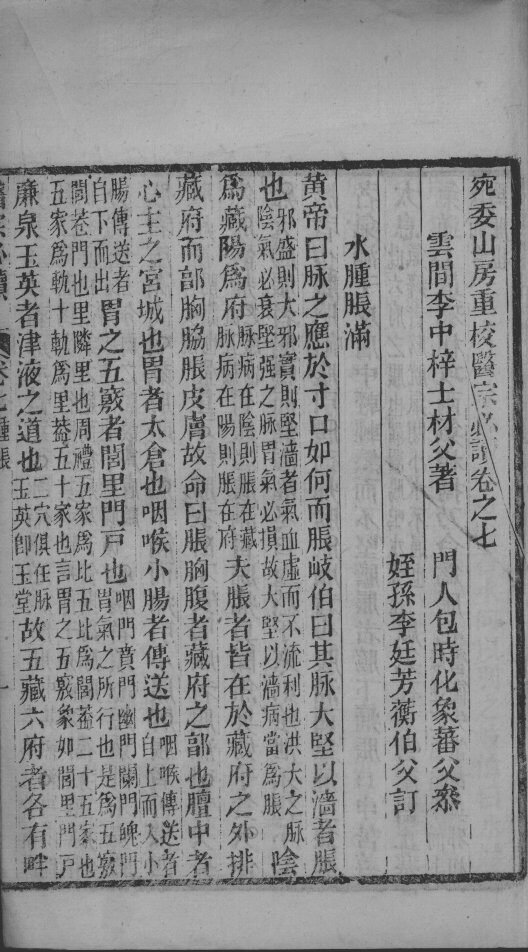 宛委山房重校醫宗必讀卷之七
雲間李中梓士材父著
門人包時化象蕃父叅
姪孫李廷芳蘅伯父訂
水腫脹滿
黃帝曰脉之應於寸口如何而脹岐伯曰其脉大堅以濇者脹
也
邪盛則大邪實則堅濇者氣血虛而不流利也洪大之脉
陰氣必衰堅强之脉胃氣必損故大堅以濇病當爲脹
陰
爲藏陽爲府
脉病在陰則脹在藏
脉病在陽則脹在府
夫脹者皆在於藏府之外排
藏府而郭胸脇脹皮膚故命曰脹胸腹者藏府之郭也膻中者
心主之宮城也胃者太倉也咽喉小腸者傳送也
咽喉傳送者
自上而入小
腸傳送者
自下而出
胃之五竅者閭里門戸也
咽門賁門幽門闌門魄門
胃氣之所行也是爲五竅
閭巷門也里隣里也周禮五家爲比五比爲閭葢二十五家也
五家爲軌十軌爲里葢五十家也言胃之五竅象如閭里門戸
廉泉玉英者津液之道也
二穴俱任脉
玉英卽玉堂
故五藏六府者各有畔
醫宗必讀
卷七
腫脹
一